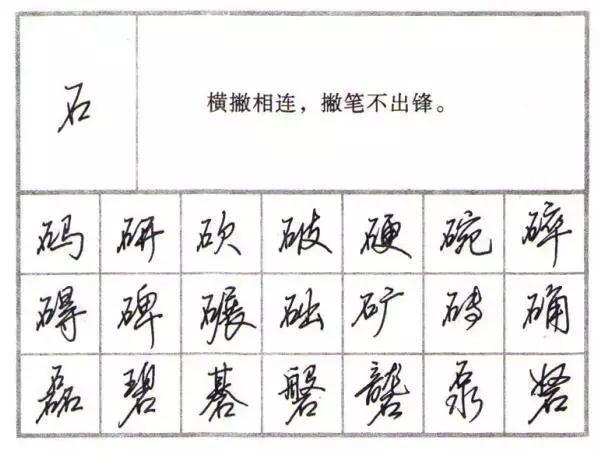 石 横撇相连，撇笔不出锋。
码 研 砍 破 硬 碗 碎
碍 碑 碾 础 矿 砖 确
磊 碧 碁 磐 礱 泵 砮